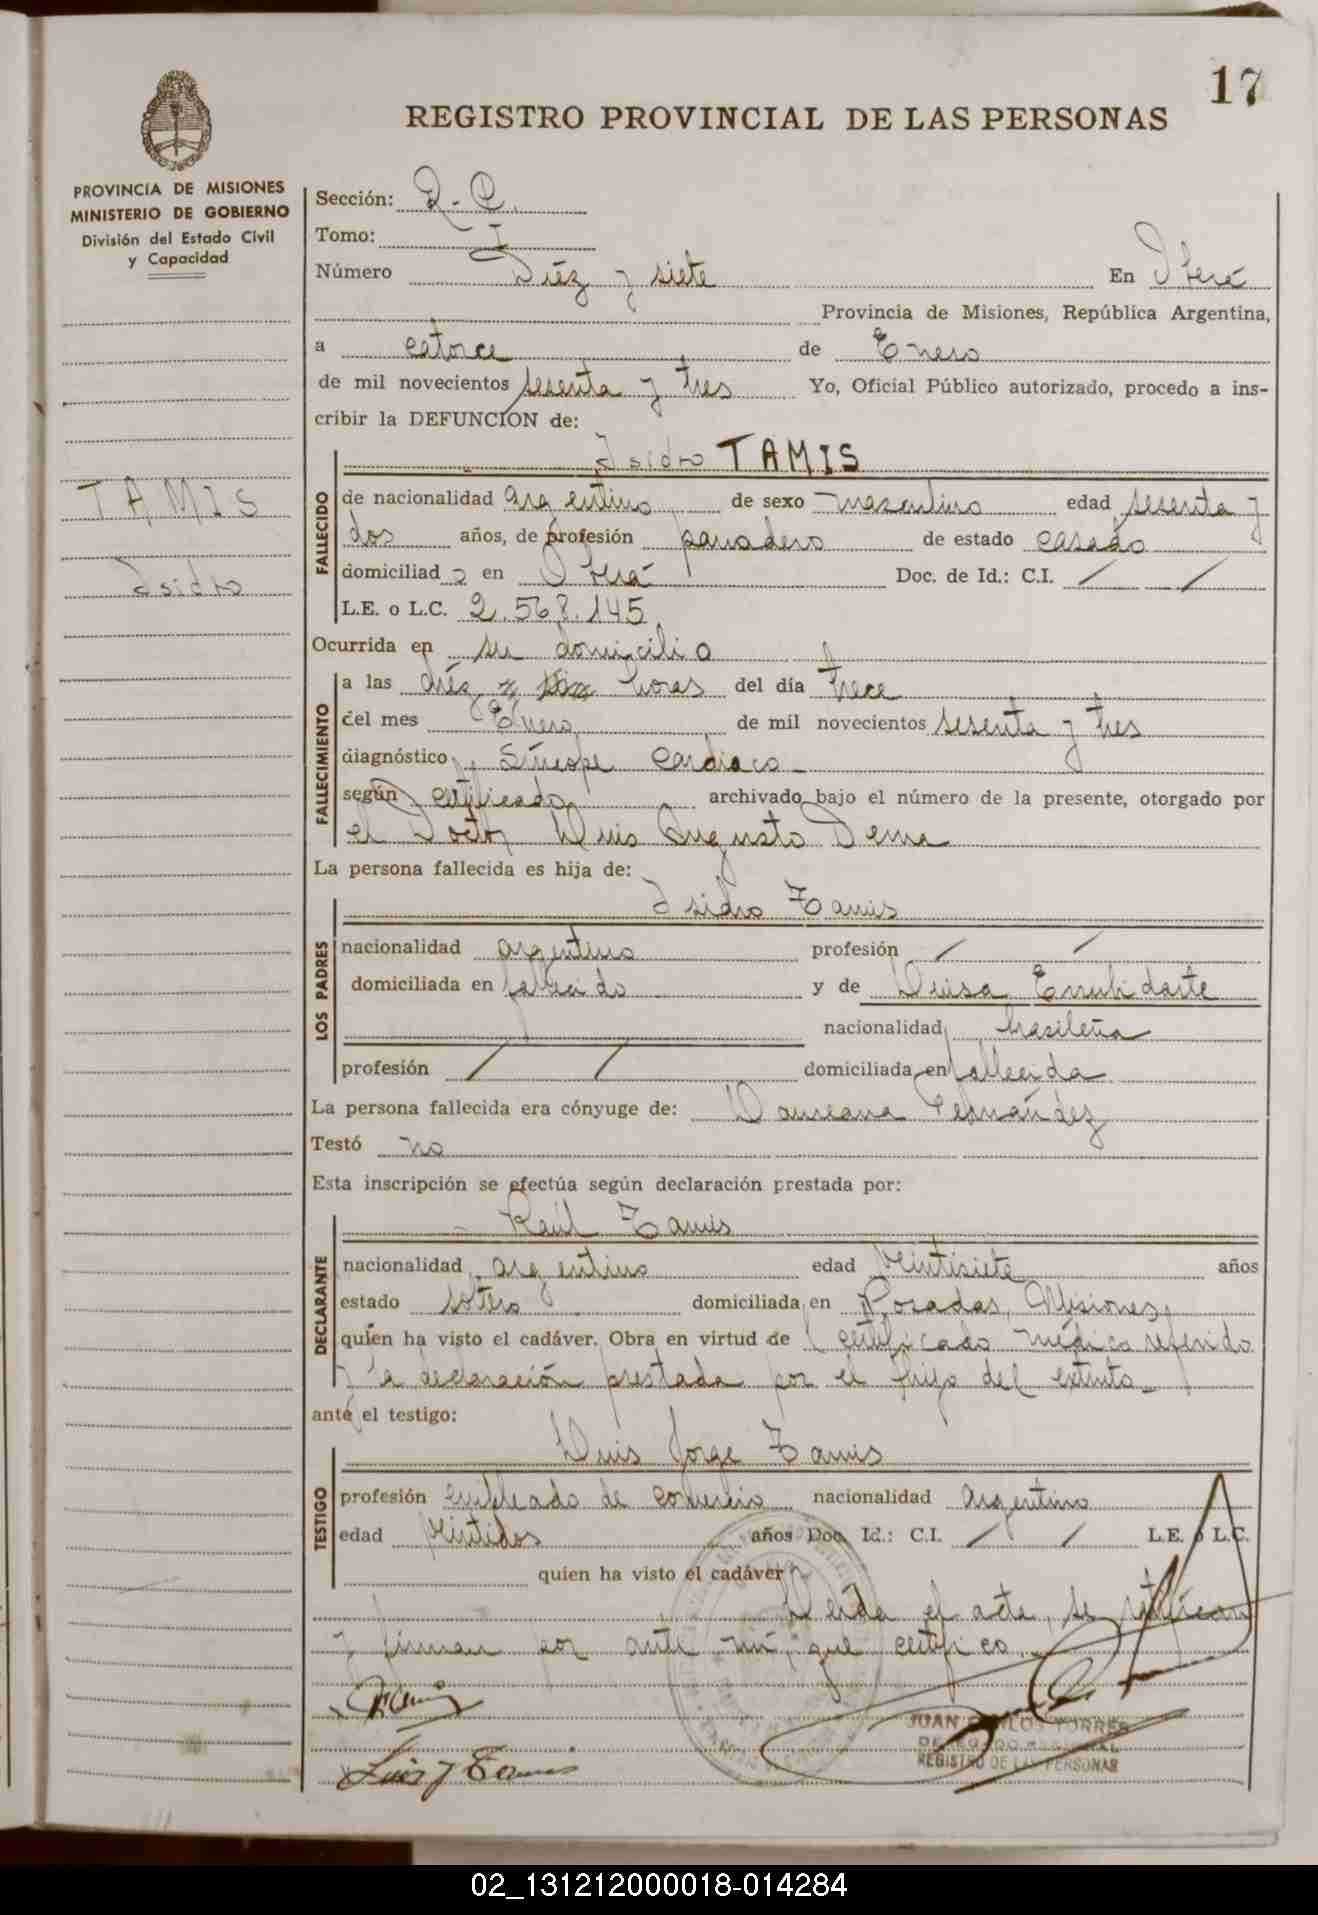 17
REGISTRO PROVINCIAL DE LAS PERSONAS
PROVINCIA DE MISIONES
MINISTERIO DE GOBIERNO
División del Estado Civil
y Capacidad
TAMIS
Isidro
Sección: R. C.
Tomo: I
Número Diéz y siete En Oberá
Provincia de Misiones, República Argentina,
a catorce de Enero
de mil novecientos sesenta y tres Yo, Oficial Público autorizado, procedo a ins-
cribir la DEFUNCION de:
Isidro TAMIS
FALLECIDO
de nacionalidad argentino de sexo masculino edad sesenta y
dos años, de profesión panadero de estado casado
domiciliad o en Oberá Doc. de Id.: C.I. / /
L.E. o L.C. 2.568.145
Ocurrida en su domicilio
FALLECIMIENTO
a las diéz horas del día trece
del mes Enero de mil novecientos sesenta y tres
diagnóstico Síncope Cardiaco
según certificado archivado bajo el número de la presente, otorgado por
el Doctor Luis Augusto Dema
La persona fallecida es hija de:
LOS PADRES
Isidro Tamis
nacionalidad argentino profesión / /
domiciliada en fallecido y de Luisa Errubidarte
nacionalidad brasileña
profesión / / domiciliada en fallecida
La persona fallecida era cónyuge de: Laureana Fernández
Testó no
Esta inscripción se efectúa según declaración prestada por:
DECLARANTE
Raúl Tamis
nacionalidad argentino edad veintisiete años
estado soltero domiciliada en Posadas, Misiones,
quien ha visto el cadáver. Obra en virtud de certificado médico referido
y la declaración prestada por el hijo del extinto
ante el testigo:
TESTIGO
Luis Jorge Tamis
profesión empleado de comercio nacionalidad argentino
edad veintidos años Doc. Id.: C.I. / / L.E. o L.C.
quien ha visto el cadáver
Leida el acta, se ratifican
y firman por ante mi, que certifico.
Luis J Tamis
JUAN CARLOS TORRES
REGISTRO DE LAS PERSONAS
02_131212000018-014284